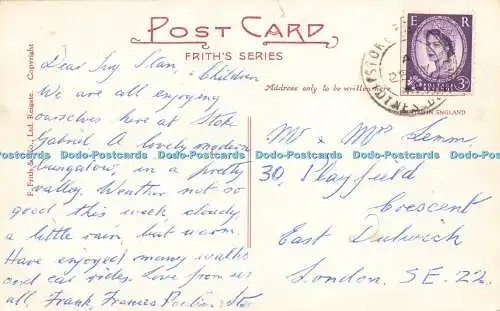 POST CARD
FRITH'S SERIES
F. Frith & Co., Ltd. Reigate. Copyright
Dear Ivy Stan, & Children
We are all enjoying
ourselves here at Stoke
Gabriel. A lovely modern
bungalow, in a pretty
valley. Weather not so
good this week, cloudy
a little rain, but warm.
Have enjoyed many walks
and car rides. Love from us
all, Frank, Frances
Address only to be written
E R
3D
STOKE
ENGLAND
Mr & Mrs
30, Playfield
Crescent
East Dulwich
London. S.E. 22.
Doco-Postcards Doco-Postcards Doco-Postcards Doco-Postcards